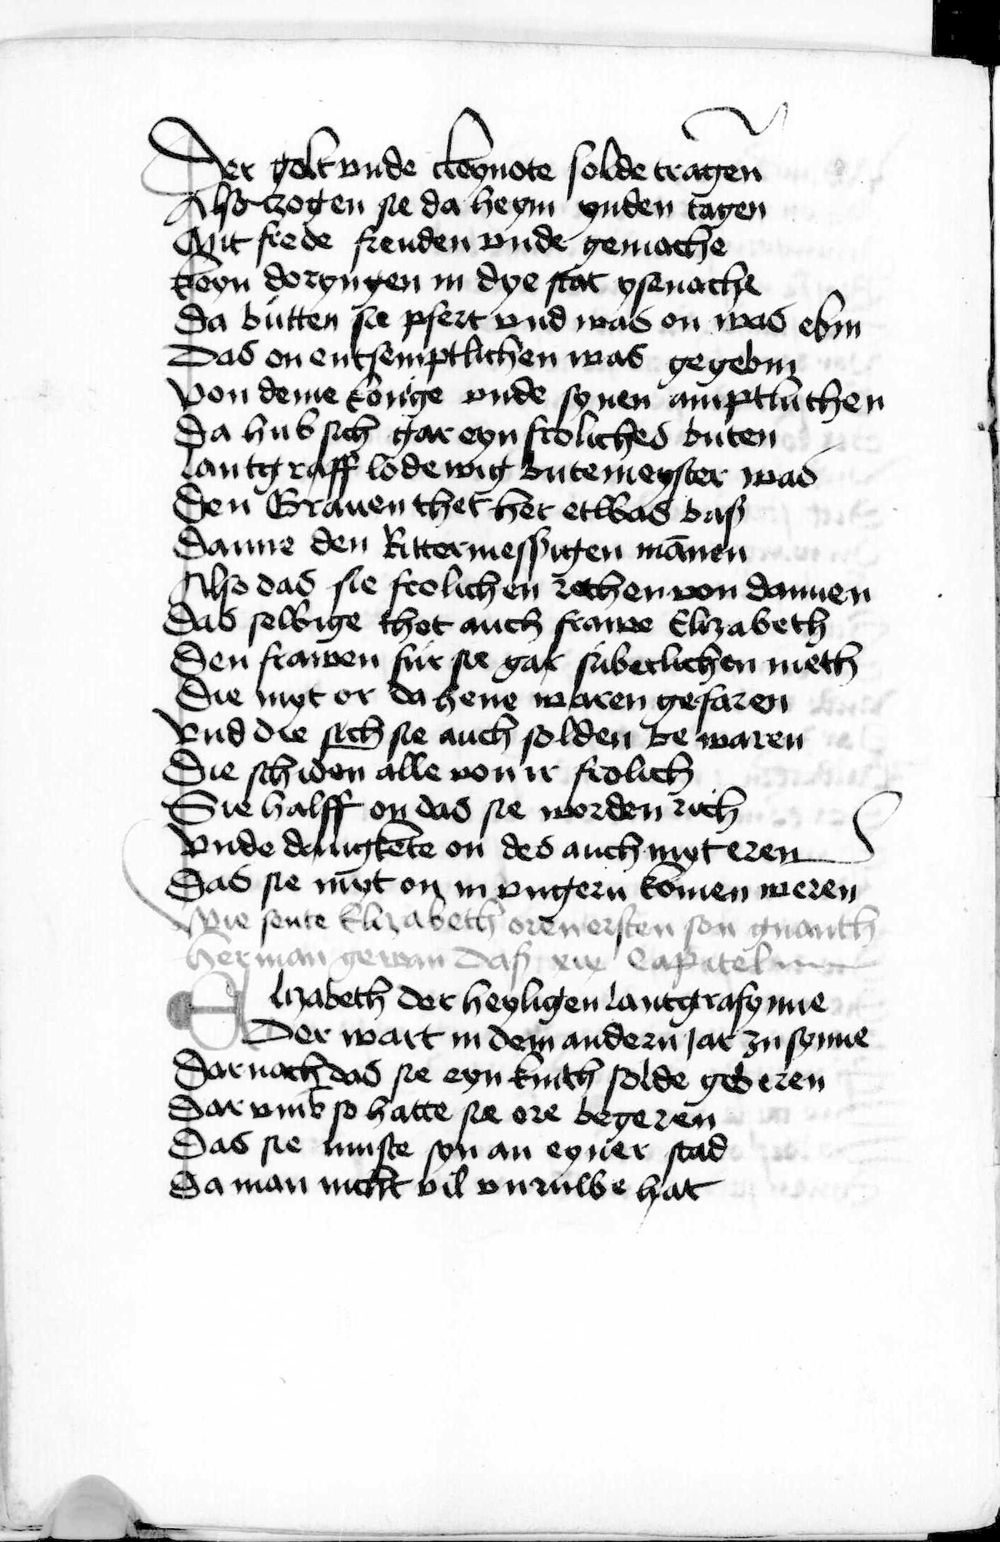 Der golt vnde cleynote solde tragen
Also zogen sie da heym ynden tagen
Mit frede freuden vnde gemache
keyn doryngen in dye stat ysenache
Da butten sie pfert vnd was on was ebin
Das on entsemptlichen was gegebin
Von deme konige vnde synen amptluthen
Da hub sich gar eyn froliches buten
Lantgraff lodewig butemeyster was
Den Grauen thet her etwas bas
Danne den Rittermessigen mānen
Also das sie frolichen zochen von dannen
Das selbige thet auch frauwe Elizabeth
Den frawen fur sie gar suberlichen meth
Die myt or da hene waren gefaren
Vnd die sich sie auch solden be waren
Die schiden alle von ir frolich
Sie halff on das sie worden rich
Vnde dangkete on des auch myt eren
Das sie myt on in vngern komen weren
Wie sente Elizabeth oren ersten son gnanth
Herman gewan Das xix Capitel
Elizabeth der heyligen lantgrafynne
Der wart in dem andern Jar zu synne
Dar nach das sie eyn kinth solde geberen
Dar vmb so hatte sie ore begeren
Das sie muste syn an eyner stad
Da man nicht vil vnruwe hat